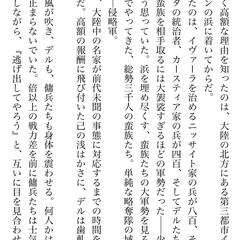 く高額な理由を知ったのは、大陸の北方にある第三都市イ
ンの浜に着いてからだ。
たのは、イヴァーラを治めるニッサイト家の兵が八百、そ
タの統治者、カースティア家の兵が四百、そしてデルたち
蛮族を相手取るには大袈裟すぎるほどの軍勢だった――少
う思っていた。浜を埋め尽くす、蛮族たちの大軍勢を見る
でやってきた、総勢三千人の蛮族たち。単純な略奪隊の域
―侵略軍。
大陸中の名家が前代未聞の事態に対応するまでの時間を
だ。高額の報酬に飛び付いた己の浅はかさに、デルは歯軋
風が吹き、デルも、傭兵たちも身体を震わせる。何人かは
止まらないでいた。倍以上の戦力差を前に傭兵たちは士気
しながら、『逃げ出してやろう』と、互いに目を見合わせ